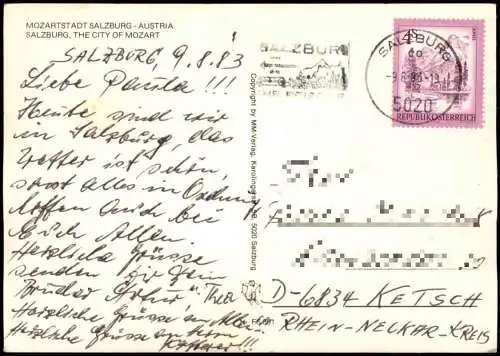 MOZARTSTADT SALZBURG - AUSTRIA
SALZBURG, THE CITY OF MOZART
SALZBURG, 9.8.83
Liebe Paula!!!
Heute sind wir
in Salzburg, das
Wetter ist schön,
sonst Alles in Ordnung
Hoffen Auch bei
Euch Allen.
Herzliche Grüsse
senden Dir Dein
Bruder
Herzliche Grüsse an Alle
Herzliche Grüsse an
Copyright by MM-Verlag, 5020 Salzburg
SALZBURG
SALZBURG
5020
REPUBLIK ÖSTERREICH
D-6834 KETSCH
RHEIN-NECKAR-KREIS